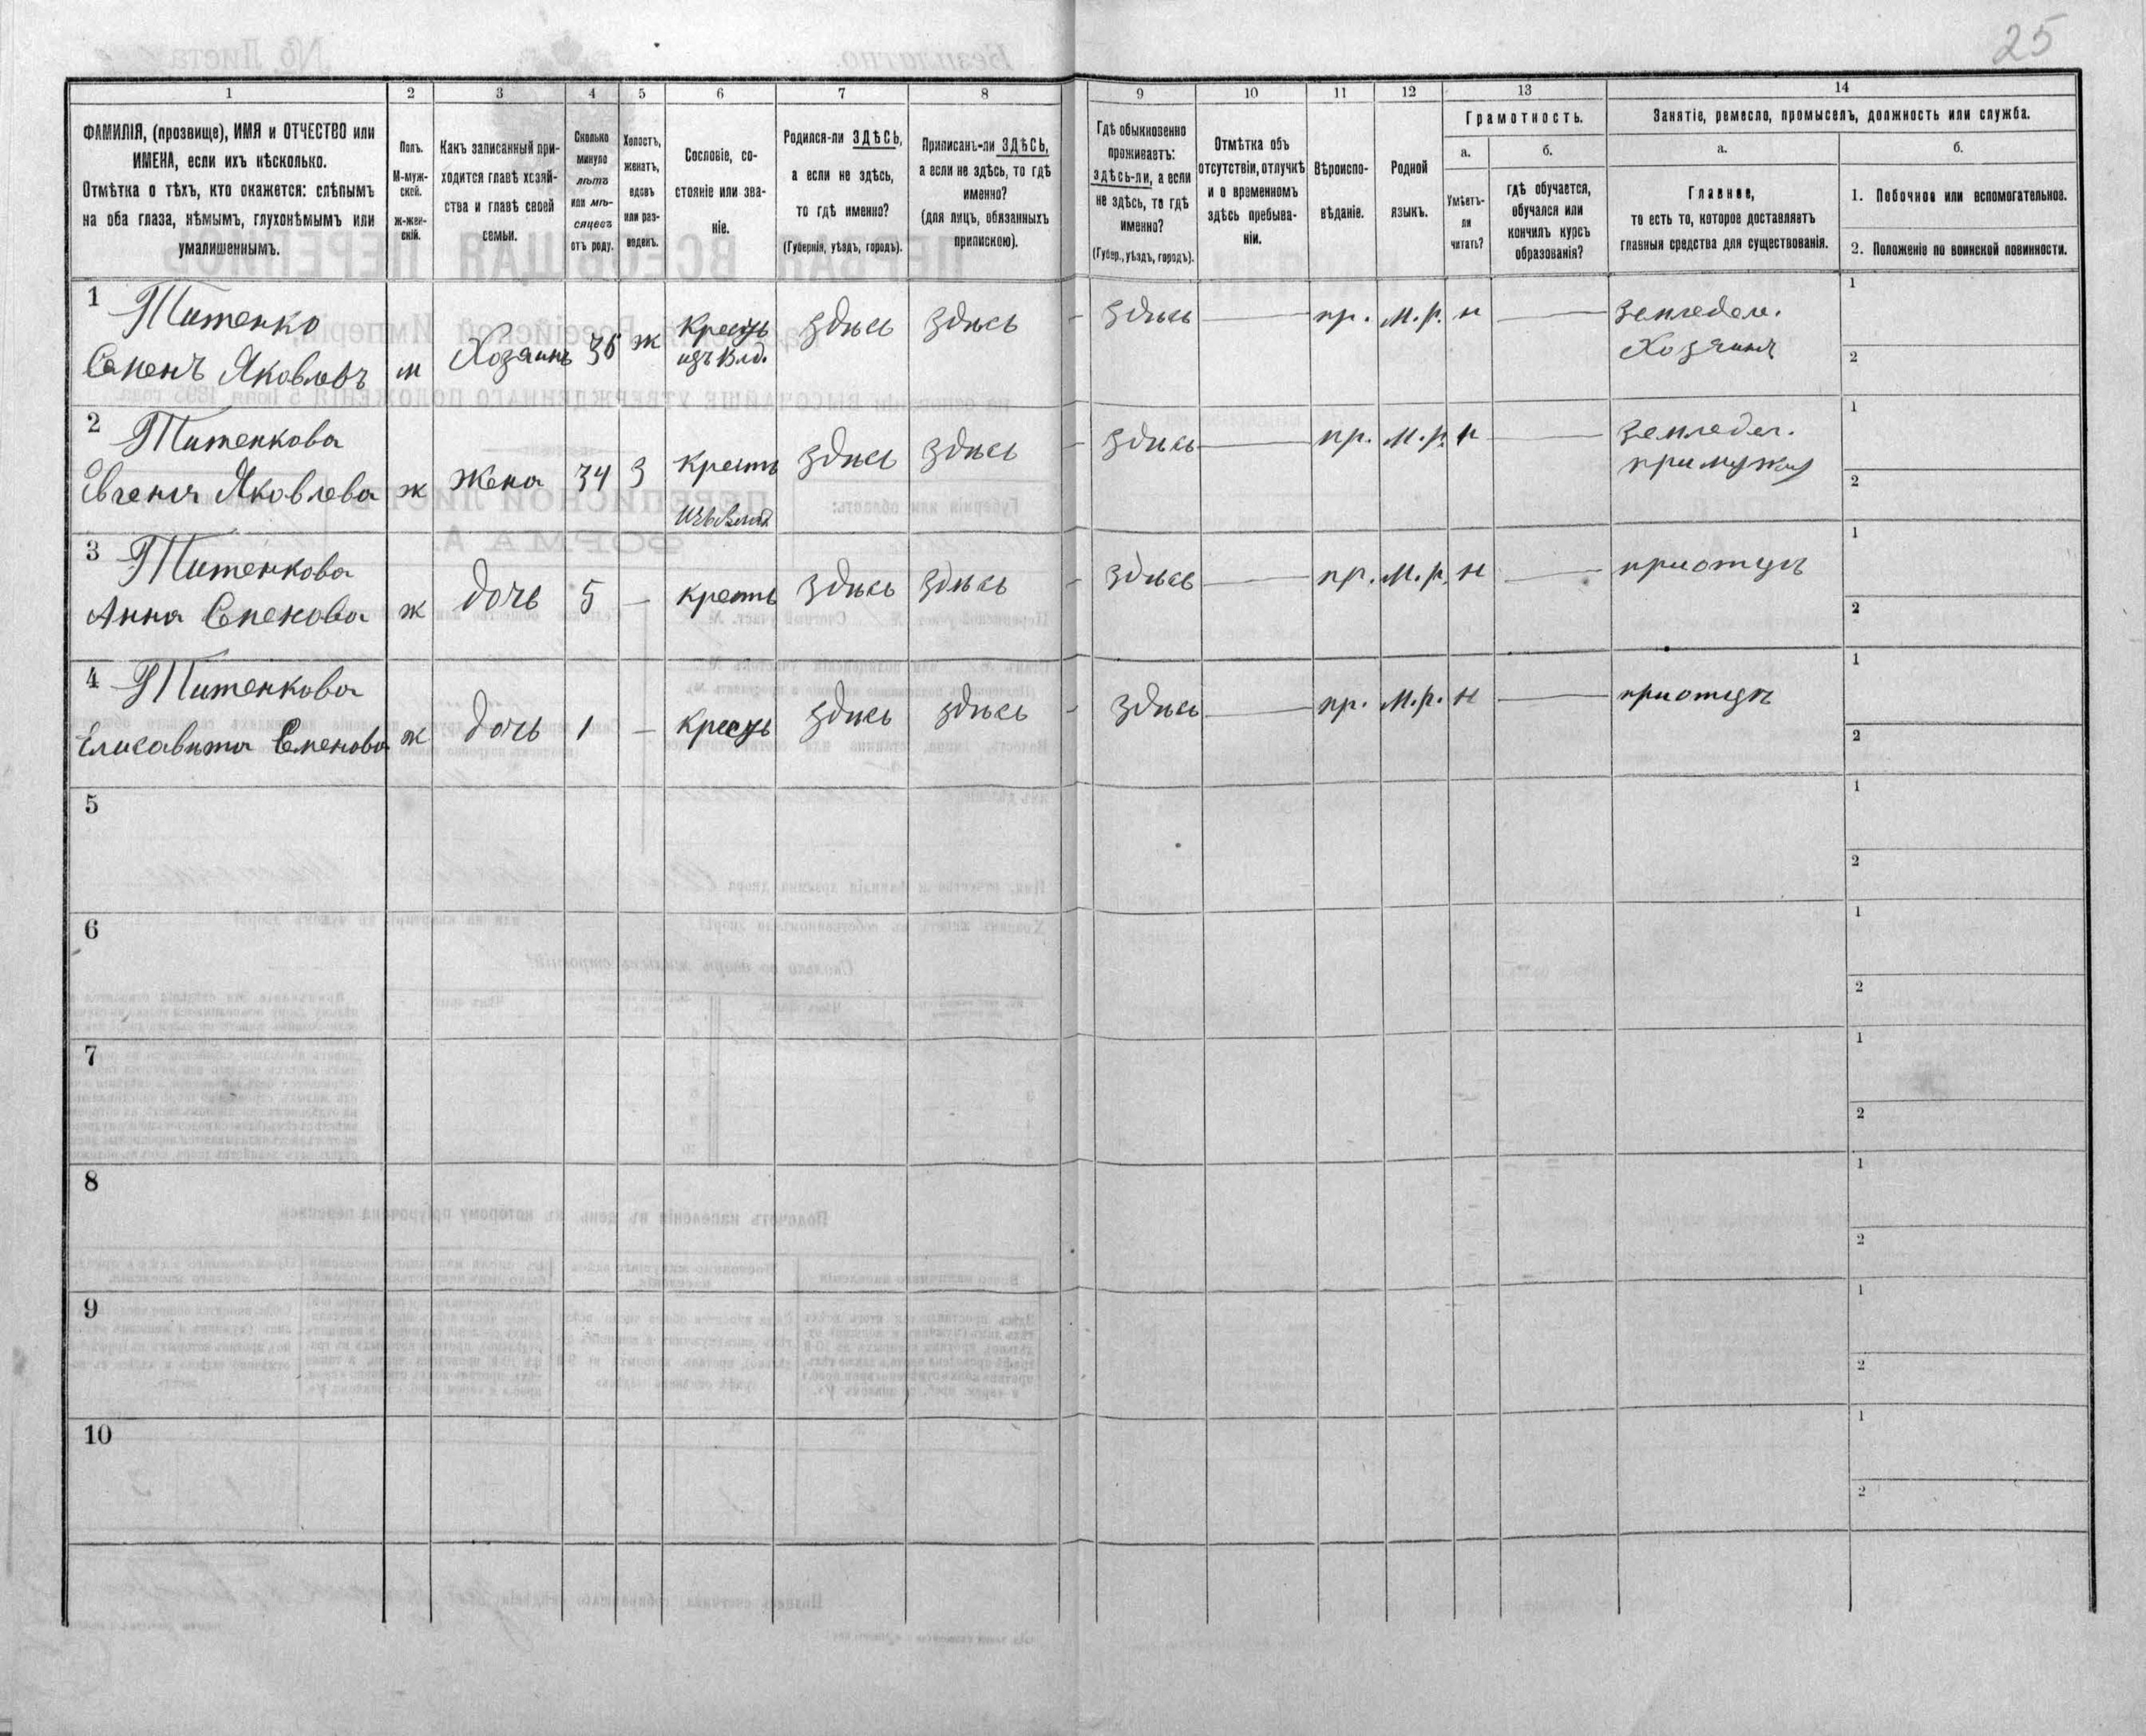 25
1 2 3 4 5 6 7 8 9 10 11 12 13 14
ФАМИЛІЯ, (прозвище), ИМЯ и ОТЧЕСТВО или
ИМЕНА, если ихъ нѣсколько.
Отмѣтка о тѣхъ, кто окажется: слѣпымъ
на оба глаза, нѣмымъ, глухонѣмымъ или
умалишеннымъ.
Полъ.
М-муж-
ской.
Ж-жен-
скій.
Какъ записанный при-
ходится главѣ хозяй-
ства и главѣ своей
семьи.
Сколько
минуло
лѣтъ
или мѣ-
сяцевъ
отъ роду.
Холостъ,
женатъ,
вдовъ
или раз-
веденъ.
Сословіе, со-
стояніе или зва-
ніе.
Родился-ли ЗДѢСЬ,
а если не здѣсь,
то гдѣ именно?
(Губернія, уѣздъ, городъ).
Приписанъ-ли ЗДѢСЬ,
а если не здѣсь, то гдѣ
именно?
(для лицъ, обязанныхъ
припискою).
Гдѣ обыкновенно
проживаетъ:
здѣсь-ли, а если
не здѣсь, то гдѣ
именно?
(Губер., уѣздъ, городъ).
Отмѣтка объ
отсутствіи, отлучкѣ
и о временномъ
здѣсь пребыва-
ніи.
Вѣроиспо-
вѣданіе.
Родной
языкъ.
Грамотность.
а.
Умѣетъ-
ли
читать?
б.
гдѣ обучается,
обучался или
кончилъ курсъ
образованія?
Занятіе, ремесло, промыселъ, должность или служба.
а.
Главное,
то есть то, которое доставляетъ
главныя средства для существованія.
б.
1. Побочное или вспомогательное.
2. Положеніе по воинской повинности.
1 Титенко
Семенъ Яковлевъ м Хозяинъ 36 ж Крестъ изъ Влд. здѣсь здѣсь здѣсь — пр. м.р. н — земледел. Хозяинъ 1 2
2 Титенкова
Евгенія Яковлева ж Жена 34 З крестъ изъ Влад. здѣсь здѣсь здѣсь — пр. м.р. н — земледел. при мужѣ 1 2
3 Титенкова
Анна Семенова ж дочь 5 — крестъ здѣсь здѣсь здѣсь — пр. м.р. н — при отцѣ 1 2
4 Титенкова
Елисавита Семенова ж дочь 1 — крестъ здѣсь здѣсь здѣсь — пр. м.р. н — при отцѣ 1 2
5 1 2
6 1 2
7 1 2
8 1 2
9 1 2
10 1 2